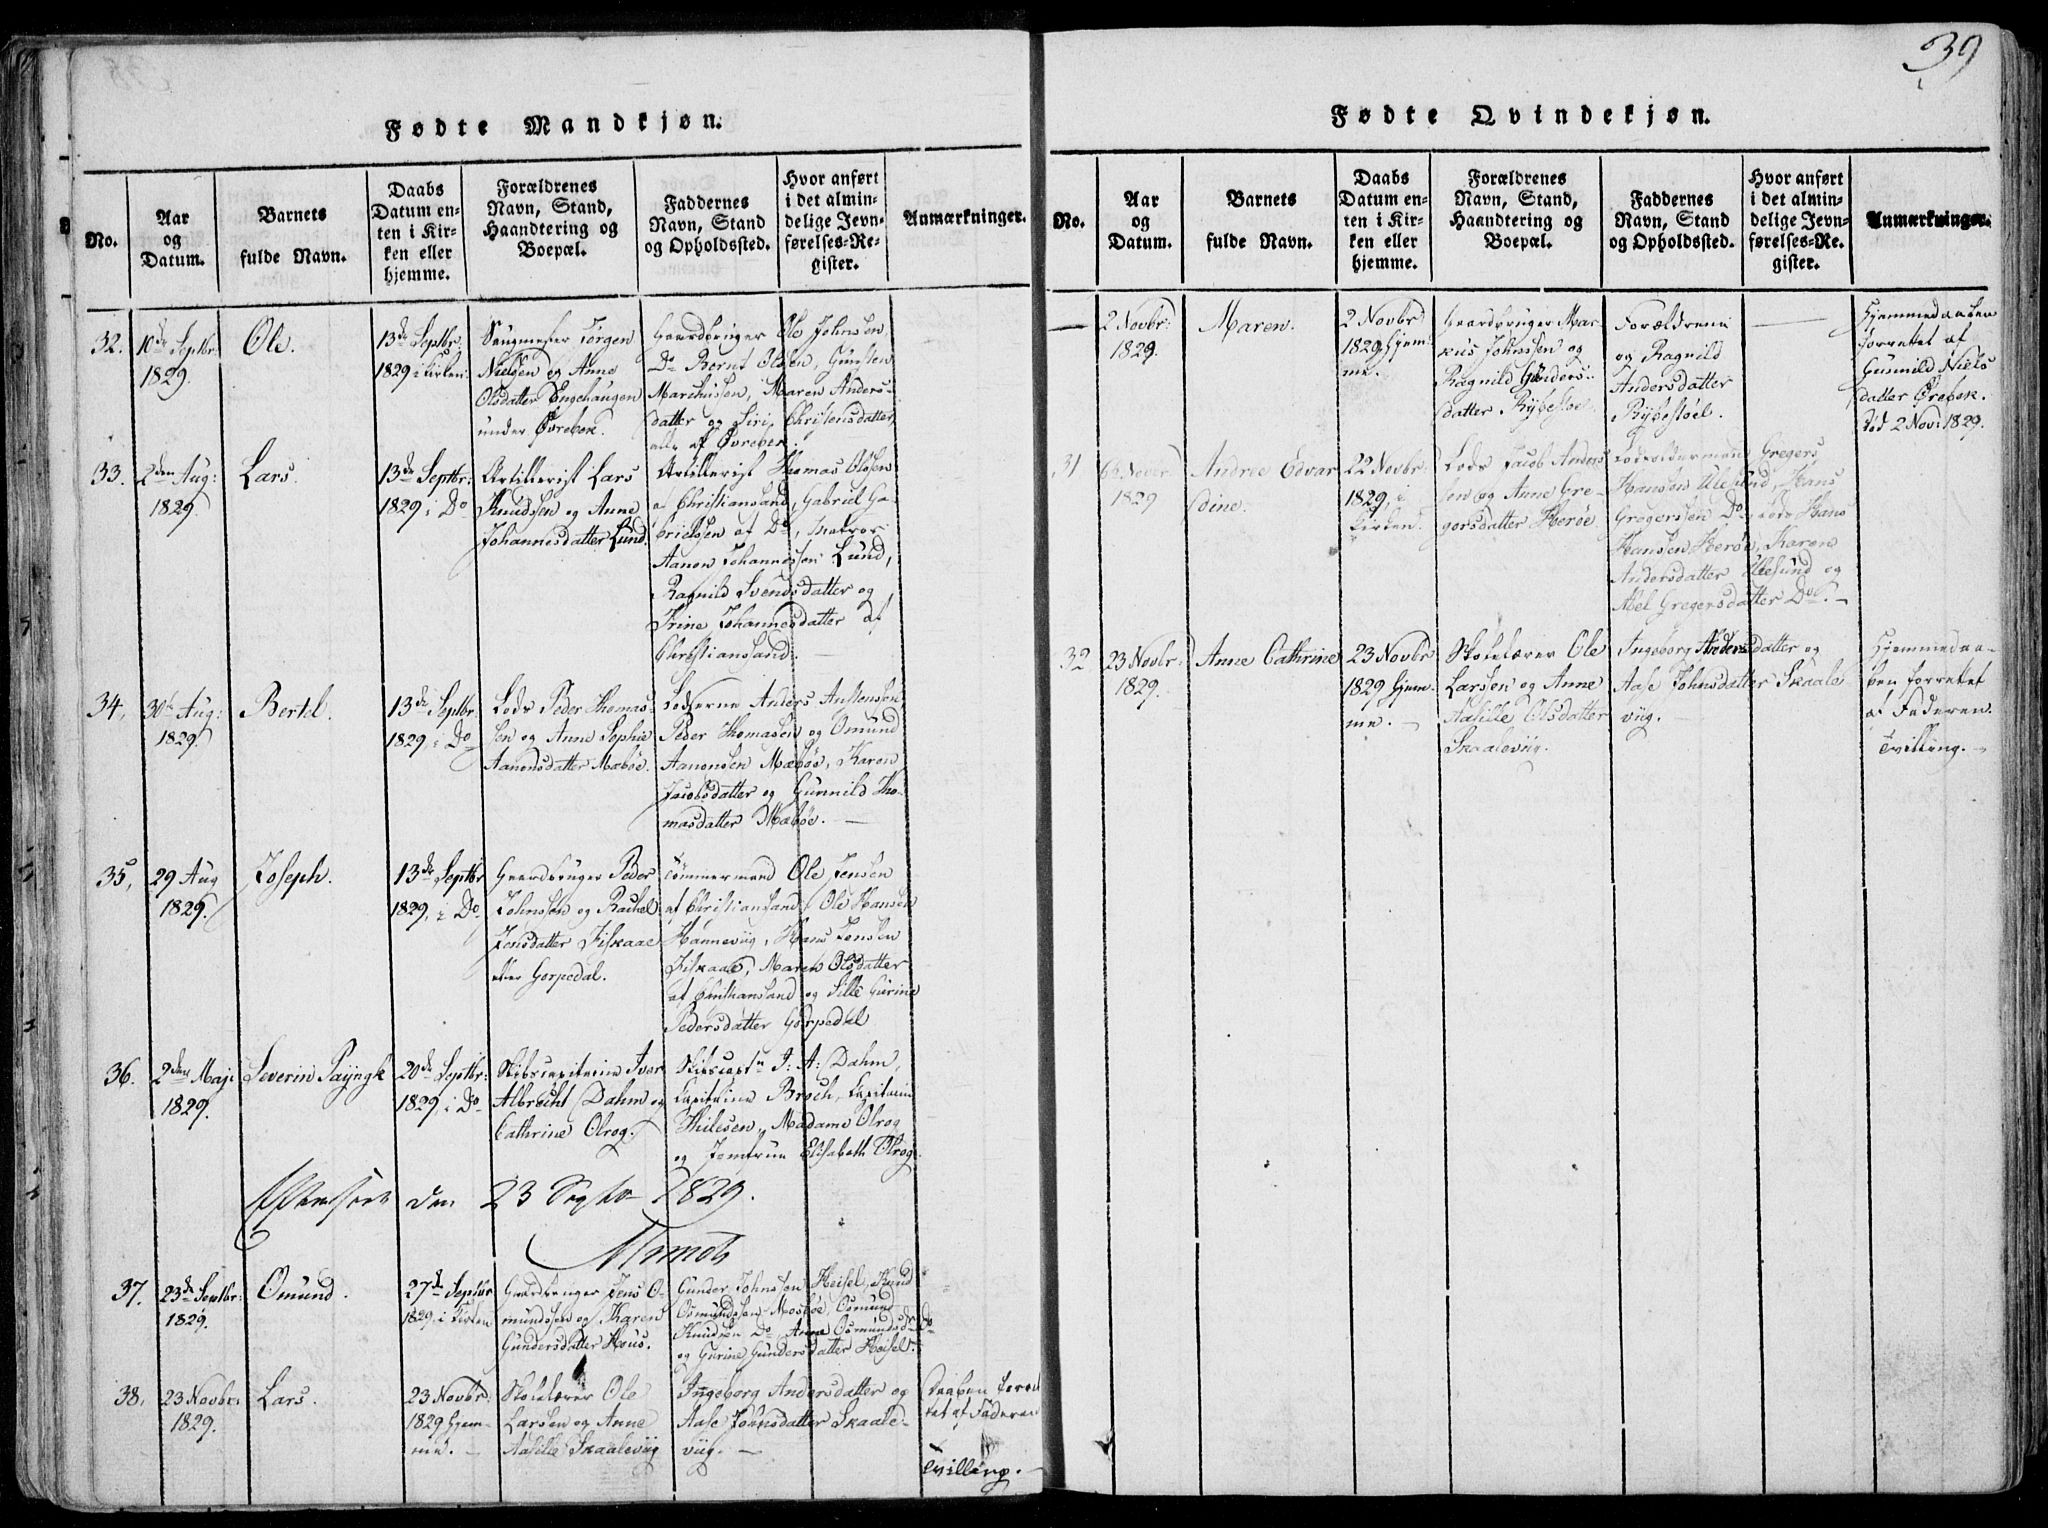 39
Fødte Mandkjøn.
No.
Aar
og
Datum.
Barnets
fulde Navn.
Daabs
Datum en-
ten i Kir-
ken eller
hjemme.
Forældrenes
Navn, Stand,
Haandtering og
Boepæl.
Faddernes
Navn, Stand
og Opholdssted.
Hvor anført
i det almin-
delige Jevn-
førelses-Re-
gister.
Anmærkninger.
32.
10de Septbr:
1829.
Ole.
13de Septbr.
1829 i Kirken.
Jørgen
Nielsen og Anne
Olsdatter Engehaugen
under Øvrebek.
Gaardbruger Ole Johnsen
Do Bornt Olsen, Gunsten
Marchussen, Maren Anders-
datter og Siri Christensdatter,
alle af Øvrebek.
33.
2den Aug:
1829.
Lars.
13de Septbr:
1829 i Do
Artillerist Lars
Knudssen og Anne
Johannesdatter Lund.
Artillerist Thomas Olssen
af Christiansand, Gabriel Ga-
brielssen af Do, Matros
Aanon Johannessen Lund,
Ragnild Svendsdatter og
Trine Johannesdatter af
Christiansand.
34.
30te Aug:
1829.
Bertel.
13de Septbr.
1829, i Do
Lods Peder Thomas-
sen og Anne Sophie
Aanonsdatter Mæbøe.
Lodserne Anders Austensen
Peder Thomasen og Omund
Aanonsen Mæbøe, Karen
Jacobsdatter og Gunnild Tho-
masdatter Mæbøe. —
35.
29 Aug
1829.
Joseph.
13de Septbr
1829, i Do
Gaardbruger Peder
Johnssen og Rachel
Jensdatter Fiskaae
eller Gorpedal.
Tømmermand Ole Jensen
af Christiansand, Ole Hansen
Hannevig, Hans Jensen
Fiskaae, Maren Olsdatter
af Christiansand og Sille Gurine
Pedersdatter Gorpedal
36.
2den Maji
1829.
Severin Paÿngk
20de Septbr:
1829, i Do
Skibscapitaine Ivar
Albrecht Dahm og
Cathrine Olrog.
Skibscaptn I: A: Dahm,
Capitaine Broch, Capitain
Thilesen, Madame Olrog
og Jomfrue Elisabeth Olrog.
den 23 Septbr 1829.
37.
23de Septbr:
1829.
Omund.
27de Septbr
1829, i Kirken
Gaardbruger Jens O-
mundssen og Karen
Gundersdatter Huus.
Gunder Johnssen Heisel, Knud
Osmundssen Mosbøe, Osmund
Knudsen Do, Anne Osmundsdr Do
og Gurine Gundersdatter Heisel.
38.
23 Novbr:
1829.
Lars.
23 Novbr:
1829 hjem-
me. —
Skolelærer Ole
Larssen og Anne
Aasille Skaaleviig
Ingeborg Andersdatter og
Aase Johnsdatter Skaale-
viig. —
Daaben forret
tet af Faderen
Tvilling. —
Fødte Qvindekjøn.
No.
Aar
og
Datum.
Barnets
fulde Navn.
Daabs
Datum en-
ten i Kir-
ken eller
hjemme.
Forældrenes
Navn, Stand,
Haandtering og
Boepæl.
Faddernes
Navn, Stand
og Opholdssted.
Hvor anført
i det almin-
delige Jevn-
førelses-Re-
gister.
Anmærkninger.
—
2 Novbr:
1829.
Maren.
2 Novbr
1829 hjem-
me.
Gaardbruger Mar-
kus Johnssen og
Ragnild Gunders-
datter Rÿbestøe.
Forældrene
og Ragnild
Andersdatter
Rÿbestøel.
—
Hjemmedaaben
forrettet af
Gunnild Niels
datter Ørebek.
død 2 Nov: 1829.
31
6te Novbr
1829
Andree Edvar
dine.
22 Novbr:
1829, i
Kirken.
Lods Jacob Anders
sen og Anne Gre-
gersdatter Herøe
Lodsoldermand Gregers
Hanssen Ulesund, Hans
Gregerssen Do, Lods Hans
Hanssen Herøe, Karen
Andersdatter Ulesund og
Abel Gregersdatter Do. —
32
23 Novbr:
1829.
Anne Cathrine
23 Novbr
1829 hjem-
me. —
Skolelærer Ole
Larssen og Anne
Aasille Olsdatter
Skaaleviig.
Ingeborg Andersdatter og
Aase Johnsdatter Skaale
viig. —
Hjemmedaa-
ben forrettet
af Faderen.
Tvilling. —